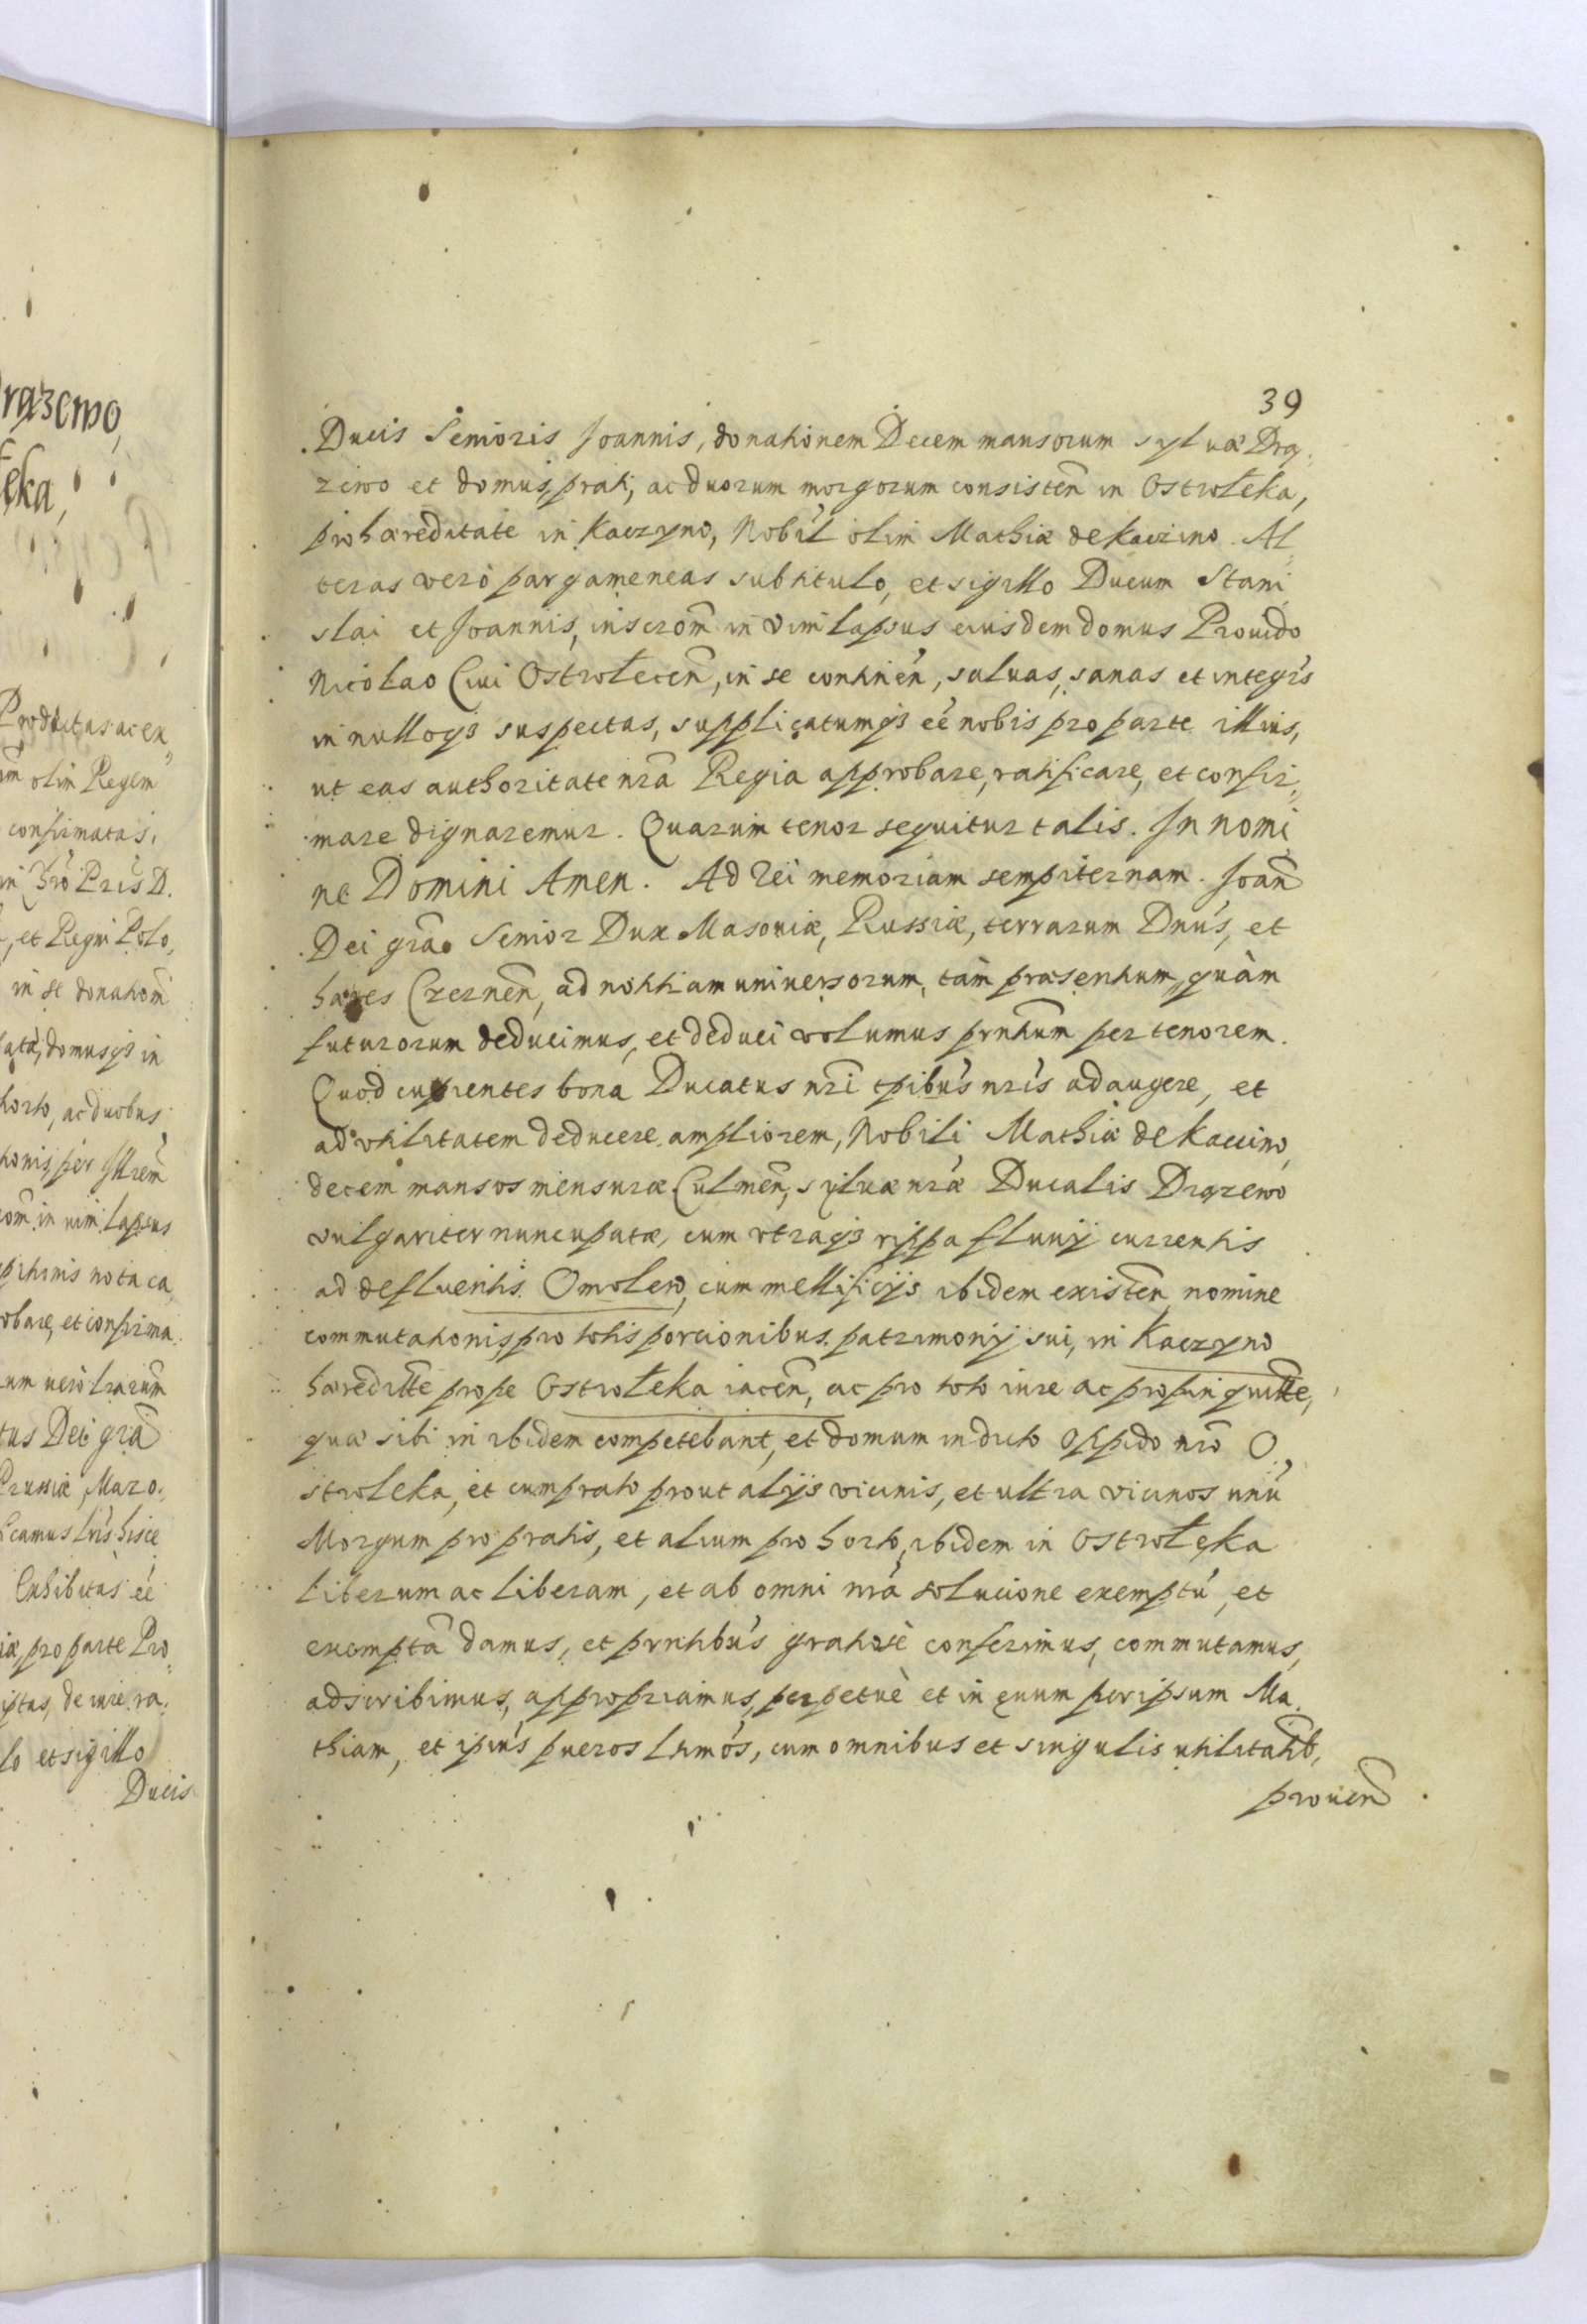 rązewo,
łeka,
Productas ac ex
im olim Regem
confirmatas,
, et Regni Polo,
in se donatiom̃
atã, domusqȝ in
horto, ac duobus
om̃ in vim lapsus
obare, et confirma
um verò lrarum̃
tus Dei grã
Prussiæ, Mazo.,
Exhibitas eē
iæ, pro parte Pro
lo et sigillo
Ducis
39
Ducis Senioris Joannis, donationem Decem mansorum sylvæ Drą,
zewo et domus, prati, ac duorum morgorum consisteñ in Ostrołeka,
pro hæreditate in Kaczyno, Nobil olim Mathiæ de Kaczino. Al
teras verò pargameneas sub titulo, et sigillo Ducum Stani
slai et Joannis, inscrom̃ in vim lapsus eiusdem domus Prouido
Nicolao Ciui Ostroleceñ, in se contineñ, saluas, sanas et integrs
in nulloqȝ suspectas, supplicatumqȝ eē nobis pro parte illius,
ut eas authoritate nrã Regia approbare, ratificare, et confir,
mare dignaremur. Quarum tenor sequitur talis. In nomi
ne Domini Amen. Ad rei memoriam sempiternam. Joañ
Dei grã Senior Dux Masoviæ, Russiæ, terrarum Dnus, et
hæres Czerneñ, ad notitiam universorum, tàm præsentium, quàm
futurorum deducimus, et deduci volumus pñtium per tenorem.
Quod cupientes bona Ducatus nri tpibus nris adaugere, et
ad vtilitatem deducere ampliorem, Nobili Mathiæ de Kaccino,
decem mansos mensuræ Culmeñ, syluæ nræ Ducalis Drązewo
vulgariter nuncupatæ, cum vtraqȝ rippa fluuij currentis
ad defluentis Omolew, cum mellificijs ibidem existeñ nomine
commutationis, pro totis porcionibus patrimonij sui, in Kaczyno
hæreditte prope Ostrołeka iaceñ, ac pro toto iure ac propinquitte,
quæ sibi in ibidem competebant, et domum in dicto oppido nro O,
stroleka, et cum prato prout alijs vicinis, et ultra vicinos unũ
Morgum pro pratis, et alium pro horto, ibidem in Ostrołęka
liberum ac liberam, et ab omni nrã solucione exemptũ, et
exemptã damus, et pñtibus gratiosè conferimus, commutamus,
adscribimus, appropriamus, perpetuè et in ęuum per ipsum Ma,
thiam, et ipius pueros ltimos, cum omnibus et singulis utilitatib,
proueñ